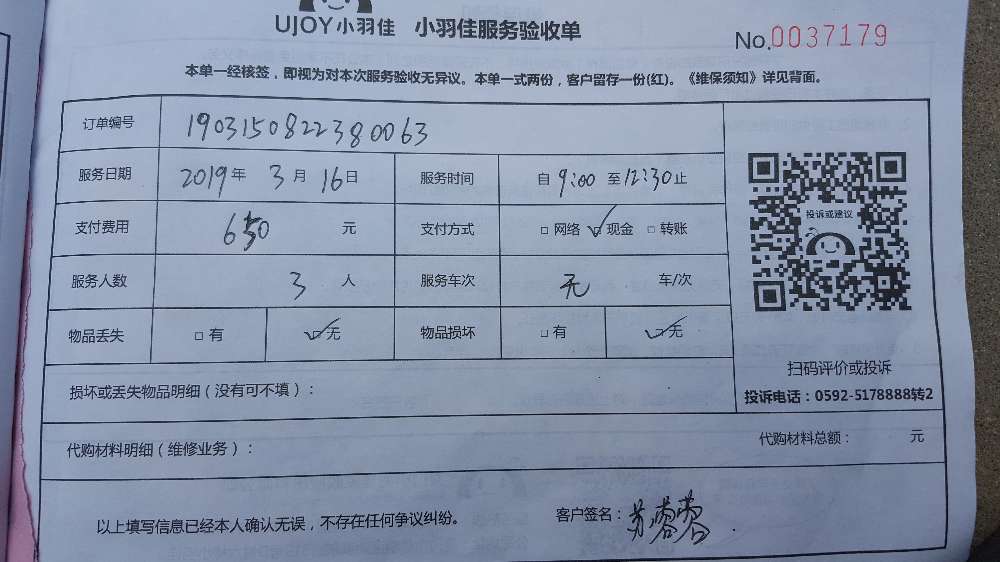 UJOY小羽佳 小羽佳服务验收单
No.0037179
本单一经核签，即视为对本次服务验收无异议。本单一式两份，客户留存一份(红)。《维保须知》详见背面。
订单编号 1903150822380063
服务日期 2019年 3月 16日 服务时间 自 9:00 至 12:30 止
支付费用 650 元 支付方式 □网络 ☑现金 □转账
投诉或建议
服务人数 3 人 服务车次 无 车/次
物品丢失 □有 ☑无 物品损坏 □有 ☑无
扫码评价或投诉
损坏或丢失物品明细（没有可不填）：
投诉电话：0592-5178888转2
代购材料明细（维修业务）： 代购材料总额： 元
以上填写信息已经本人确认无误，不存在任何争议纠纷。 客户签名：苏蓉蓉